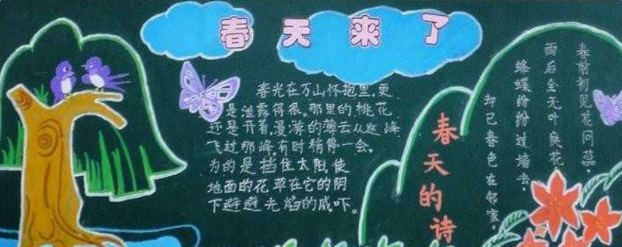 春天来了
春光在万山怀抱里,更
是泄露得很。那里的桃花
还是开着。漫游的薄云从这峰
飞过那峰,有时稍停一会,
为的是挡住太阳,使
地面的花草在它的阴
下避避光焰的威吓。
春天的诗
春前初见花间蕊,
雨后全无叶底花
蜂蝶纷纷过墙去,
却己春色在邻家